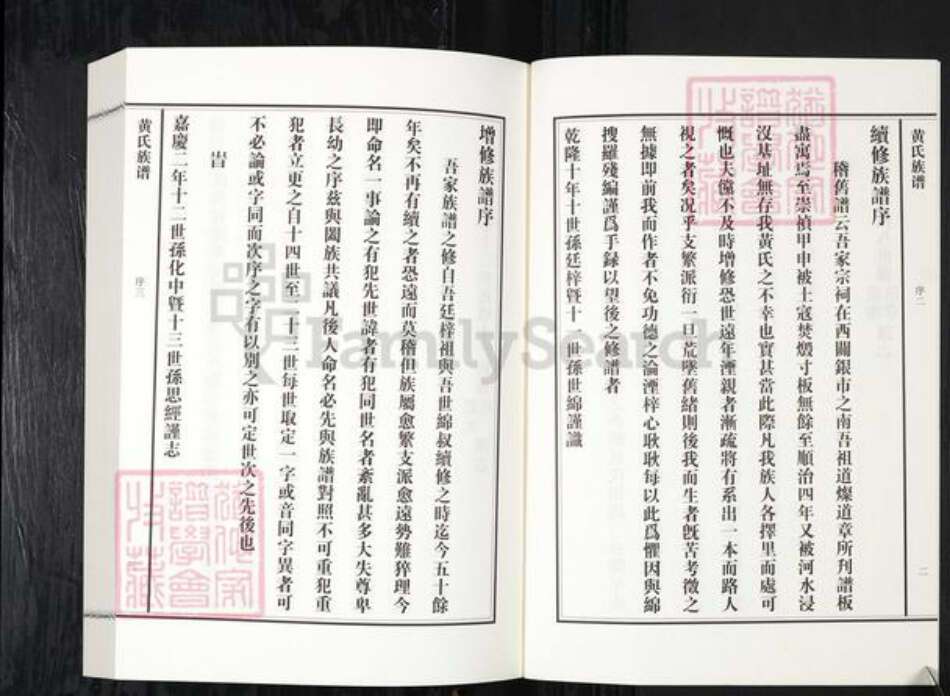 黄氏族谱
序二
二
續修族譜序
稽舊譜云吾家宗祠在西關銀市之南吾祖道燦道章所刋譜板
盡寓焉至崇禎甲申被土寇焚燬寸板無餘至順治四年又被河水浸
沒基址無存我黃氏之不幸也實甚當此際凡我族人各擇里而處可
慨也夫儻不及時增修恐世遠年湮親者漸疏將有系出一本而路人
視之者矣况乎支繁派衍一旦荒墜舊緒則後我而生者旣苦考徵之
無據即前我而作者不免功德之淪湮梓心耿耿每以此爲懼因與綿
搜羅殘編謹爲手録以望後之修譜者
乾隆十年十世孫廷梓暨十一世孫世綿謹識
增修族譜序
吾家族譜之修自吾廷梓祖與吾世綿叔續修之時迄今五十餘
年矣不再有續之者恐遠而莫稽但族屬愈繁支派愈遠勢難猝理今
即命名一事論之有犯先世諱者有犯同世名者紊亂甚多大失尊卑
長幼之序兹與闔族共議凡後人命名必先與族譜對照不可重犯重
犯者立更之自十四世至二十三世每世取定一字或音同字異者可
不必論或字同而次序之字有以别之亦可定世次之先後也
旹
嘉慶二年十二世孫化中暨十三世孫思經謹志
黄氏族谱
序三
FamilySearch